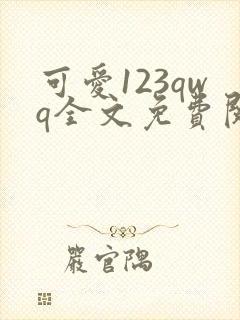 可愛123qw
q全文免費閱
嚴官隅